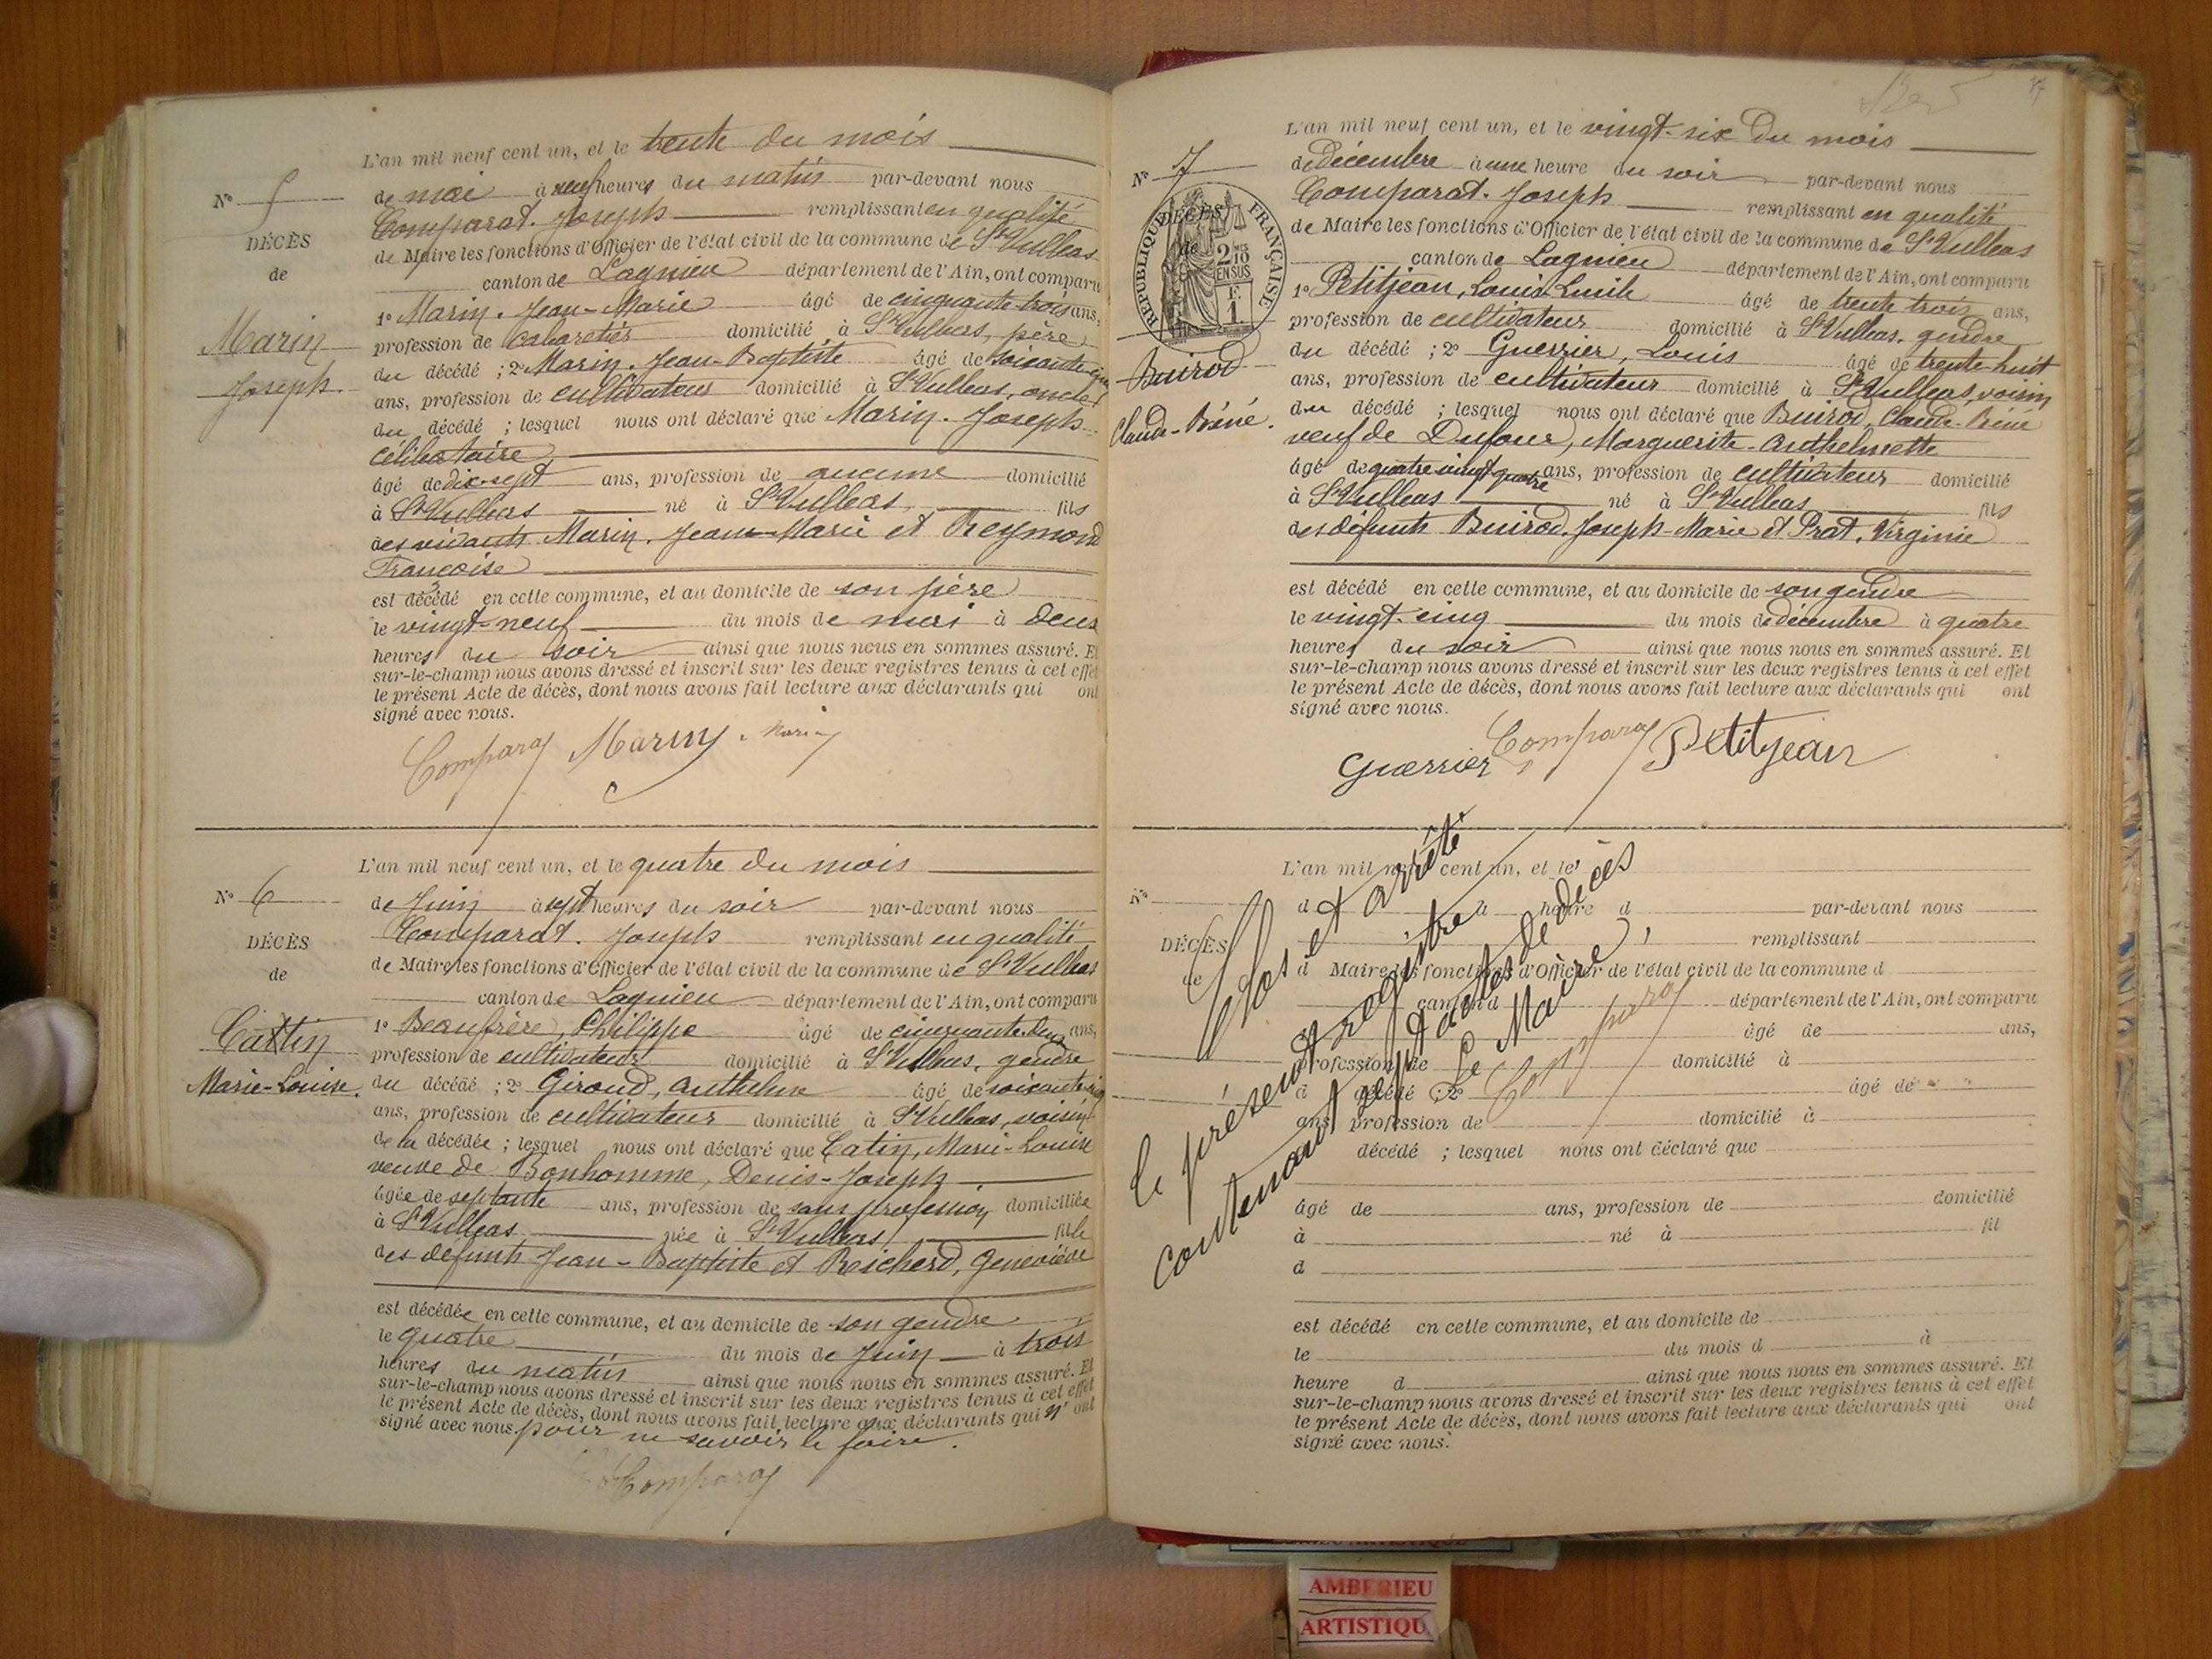 L'an mil neuf cent un, et le trente du mois
N° 5
de mai à neuf heures du matin par-devant nous
Comparat. Joseph remplissant en qualité
DÉCÈS
de Maire les fonctions d'Officier de l'état civil de la commune de St Vulbas
de
canton de Lagnieu département de l'Ain, ont comparu
1° Marin. Jean-Marie âgé de cinquante-trois ans,
Marin
profession de cabaretier domicilié à St Vulbas, père
du décédé ; 2° Marin. Jean-Baptiste âgé de soixante-cinq
Joseph.
ans, profession de cultivateur domicilié à St Vulbas, oncle
du décédé ; lesquel nous ont déclaré que Marin. Joseph
célibataire
âgé de dix-sept ans, profession de aucune domicilié
à St Vulbas né à St Vulbas fils
des vivants Marin. Jean-Marie et Reymond
Françoise
est décédé en cette commune, et au domicile de son père
le vingt-neuf du mois de mai à deux
heures du soir ainsi que nous nous en sommes assuré. Et
sur-le-champ nous avons dressé et inscrit sur les deux registres tenus à cet effet
le présent Acte de décès, dont nous avons fait lecture aux déclarants qui ont
signé avec nous.
Comparat Marin Marin
L'an mil neuf cent un, et le quatre du mois
N° 6
de Juin à sept heures du soir par-devant nous
Comparat. Joseph remplissant en qualité
DÉCÈS
de Maire les fonctions d'Officier de l'état civil de la commune de St Vulbas
de
canton de Lagnieu département de l'Ain, ont comparu
1° Beaufrère, Philippe âgé de cinquante-deux ans,
Cattin
profession de cultivateur domicilié à St Vulbas, gendre
Marie-Louise.
du décédé ; 2° Giroud, Anthelme âgé de soixante-cinq
ans, profession de cultivateur domicilié à St Vulbas, voisin
de la décédée ; lesquel nous ont déclaré que Catin, Marie-Louise
veuve de Bonhomme, Denis-Joseph
âgée de septante ans, profession de sans profession domiciliée
à St Vulbas née à St Vulbas fille
des défunts Jean-Baptiste et Reicherd, Geneviève
est décédée en cette commune, et au domicile de son gendre
le quatre du mois de Juin à trois
heures du matin ainsi que nous nous en sommes assuré. Et
sur-le-champ nous avons dressé et inscrit sur les deux registres tenus à cet effet
le présent Acte de décès, dont nous avons fait lecture aux déclarants qui n'ont
signé avec nous pour ne savoir le faire.
Comparat
L'an mil neuf cent un, et le vingt-six du mois
N° 7
de décembre à une heure du soir par-devant nous
Comparat. Joseph remplissant en qualité
DÉCÈS
de
RÉPUBLIQUE FRANÇAISE
2 MES
10
EN SUS
F.
1
de Maire les fonctions d'Officier de l'état civil de la commune de St Vulbas
canton de Lagnieu département de l'Ain, ont comparu
1° Petitjean, Louis-Emile âgé de trente trois ans,
profession de cultivateur domicilié à St Vulbas, gendre
du décédé ; 2° Guerrier, Louis âgé de trente-huit
Buirod
ans, profession de cultivateur domicilié à St Vulbas, voisin
Claude-Béné.
du décédé ; lesquel nous ont déclaré que Buirod, Claude-Béné
veuf de Dufour, Marguerite-Anthelmette
âgé de quatre-vingt-quatre ans, profession de cultivateur domicilié
à St Vulbas né à St Vulbas fils
des défunts Buirod. Joseph-Marie et Prat, Virginie
est décédé en cette commune, et au domicile de son gendre
le vingt-cinq du mois de décembre à quatre
heures du soir ainsi que nous nous en sommes assuré. Et
sur-le-champ nous avons dressé et inscrit sur les deux registres tenus à cet effet
le présent Acte de décès, dont nous avons fait lecture aux déclarants qui ont
signé avec nous.
Guerrier Comparat Petitjean
L'an mil neuf cent un, et le
N°
d à heure d par-devant nous
remplissant
DÉCÈS
de
d Maire les fonctions d'Officier de l'état civil de la commune d
canton d département de l'Ain, ont comparu
âgé de ans,
profession de domicilié à
d décédé ; 2° âgé de
ans, profession de domicilié à
décédé ; lesquel nous ont déclaré que
âgé de ans, profession de domicilié
à né à fil
d
est décédé en cette commune, et au domicile de
le du mois d à
heure d ainsi que nous nous en sommes assuré. Et
sur-le-champ nous avons dressé et inscrit sur les deux registres tenus à cet effet
le présent Acte de décès, dont nous avons fait lecture aux déclarants qui ont
signé avec nous.
Clos et arrêté
le présent registre
contenant sept actes de décès
Le Maire,
Comparat
AMBERIEU
ARTISTIQU